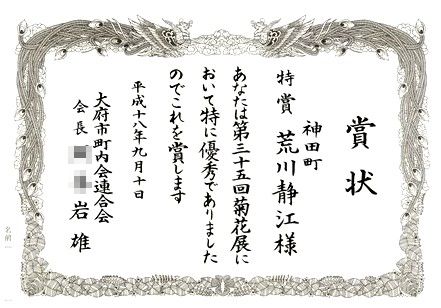 賞状
神田町
特賞 荒川静江様
あなたは第三十五回菊花展に
おいて特に優秀でありました
のでこれを賞します
平成十八年九月十日
大府市町内会連合会
会長 岩雄